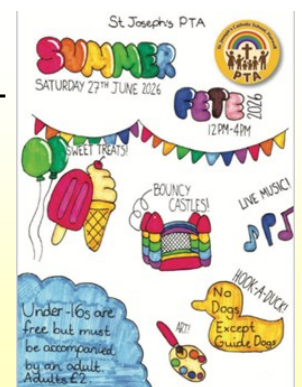 St Joseph's PTA
SUMMER
SATURDAY 27TH JUNE 2026
PTA
FETE 2026
12PM-4PM
SWEET TREATS!
BOUNCY
CASTLES!
LIVE MUSIC!
HOOK-A-DUCK!
No
Dogs
Except
Guide Dogs
ART!
Under-16s are
free but must
be accompanied
by an adult.
Adults £2.